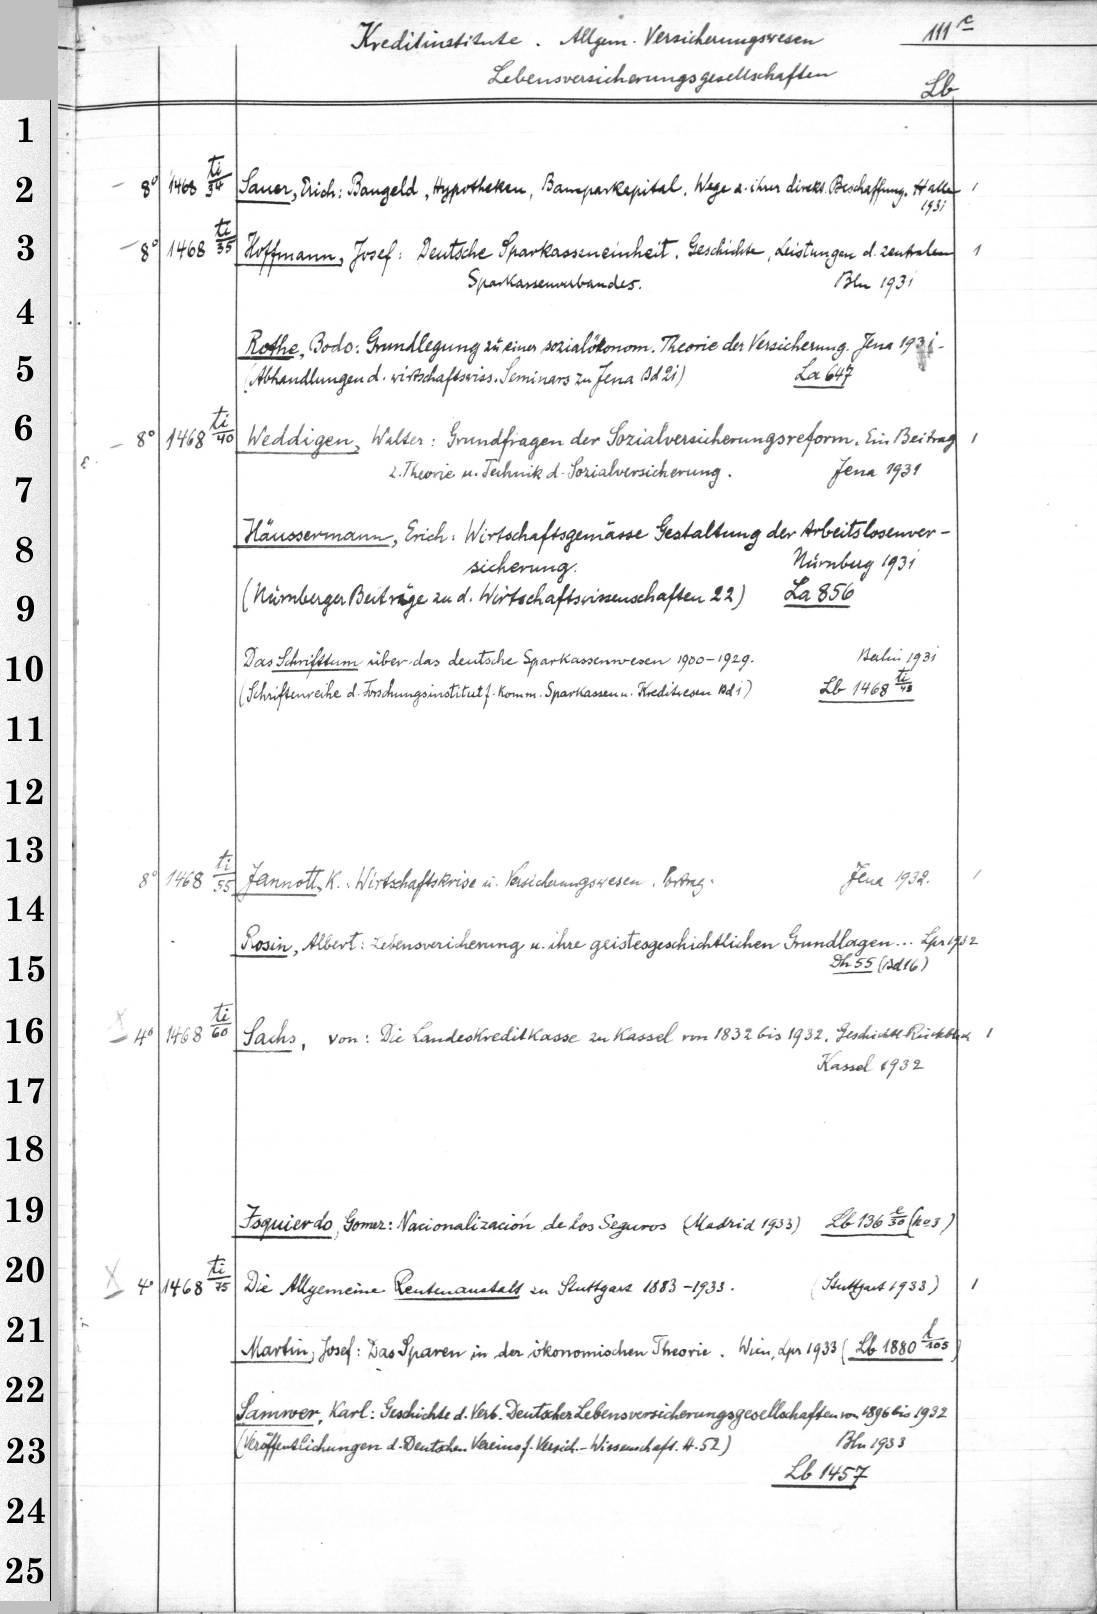 Kreditinstitute. Allgem. Versicherungswesen 111c
Lebensversicherungsgesellschaften
Lb
1
2 8° 1468 ti/34 Sauer, Erich: Baugeld, Hypotheken, Bausparkapital. Wege z. ihrer direkt. Beschaffung. Halle 1
1931
3 8° 1468 ti/35 Hoffmann, Josef: Deutsche Sparkasseneinheit. Geschichte, Leistungen d. zentralen 1
Sparkassenverbandes. Bln 1931
4
Rothe, Bodo: Grundlegung zu einer sozialökonom. Theorie der Versicherung. Jena 1931-
5 (Abhandlungen d. wirtschaftswiss. Seminars zu Jena Bd 21) La 647
6 8° 1468 ti/40 Weddigen, Walter: Grundfragen der Sozialversicherungsreform. Ein Beitrag 1
z. Theorie u. Technik d. Sozialversicherung. Jena 1931
7
8 Häussermann, Erich: Wirtschaftsgemässe Gestaltung der Arbeitslosenver-
sicherung. Nürnberg 1931
9 (Nürnberger Beiträge zu d. Wirtschaftswissenschaften 22) La 856
10 Das Schrifttum über das deutsche Sparkassenwesen 1900-1929. Berlin 1931
(Schriftenreihe d. Forschungsinstitut f. komm. Sparkassen u. Kreditwesen Bd 1) Lb 1468 ti/48
11
12
13
8° 1468 ti/55 Jannott, K.: Wirtschaftskrise u. Versicherungswesen. Vortrag. Jena 1932. 1
14
Rosin, Albert: Lebensversicherung u. ihre geistesgeschichtlichen Grundlagen... Lpr 1932
15 Dh 55 (Bd 16)
16 4° 1468 ti/60 Sachs, von: Die Landeskreditkasse zu Kassel von 1832 bis 1932. Geschichtl. Rückblick 1
Kassel 1932
17
18
19 Izquierdo, Gomez: Nacionalización de los Seguros (Madrid 1933) Lb 136 e/30 (no 3)
20 4° 1468 ti/75 Die Allgemeine Rentenanstalt zu Stuttgart 1883-1933. (Stuttgart 1933) 1
21 Martin, Josef: Das Sparen in der ökonomischen Theorie. Wien, Lpr 1933 (Lb 1880 f/105)
22 Samwer, Karl: Geschichte d. Verb. Deutscher Lebensversicherungsgesellschaften von 1896 bis 1932
23 (Veröffentlichungen d. Deutschen Vereins f. Versich.-Wissenschaft. H. 52) Bln 1933
Lb 1457
24
25